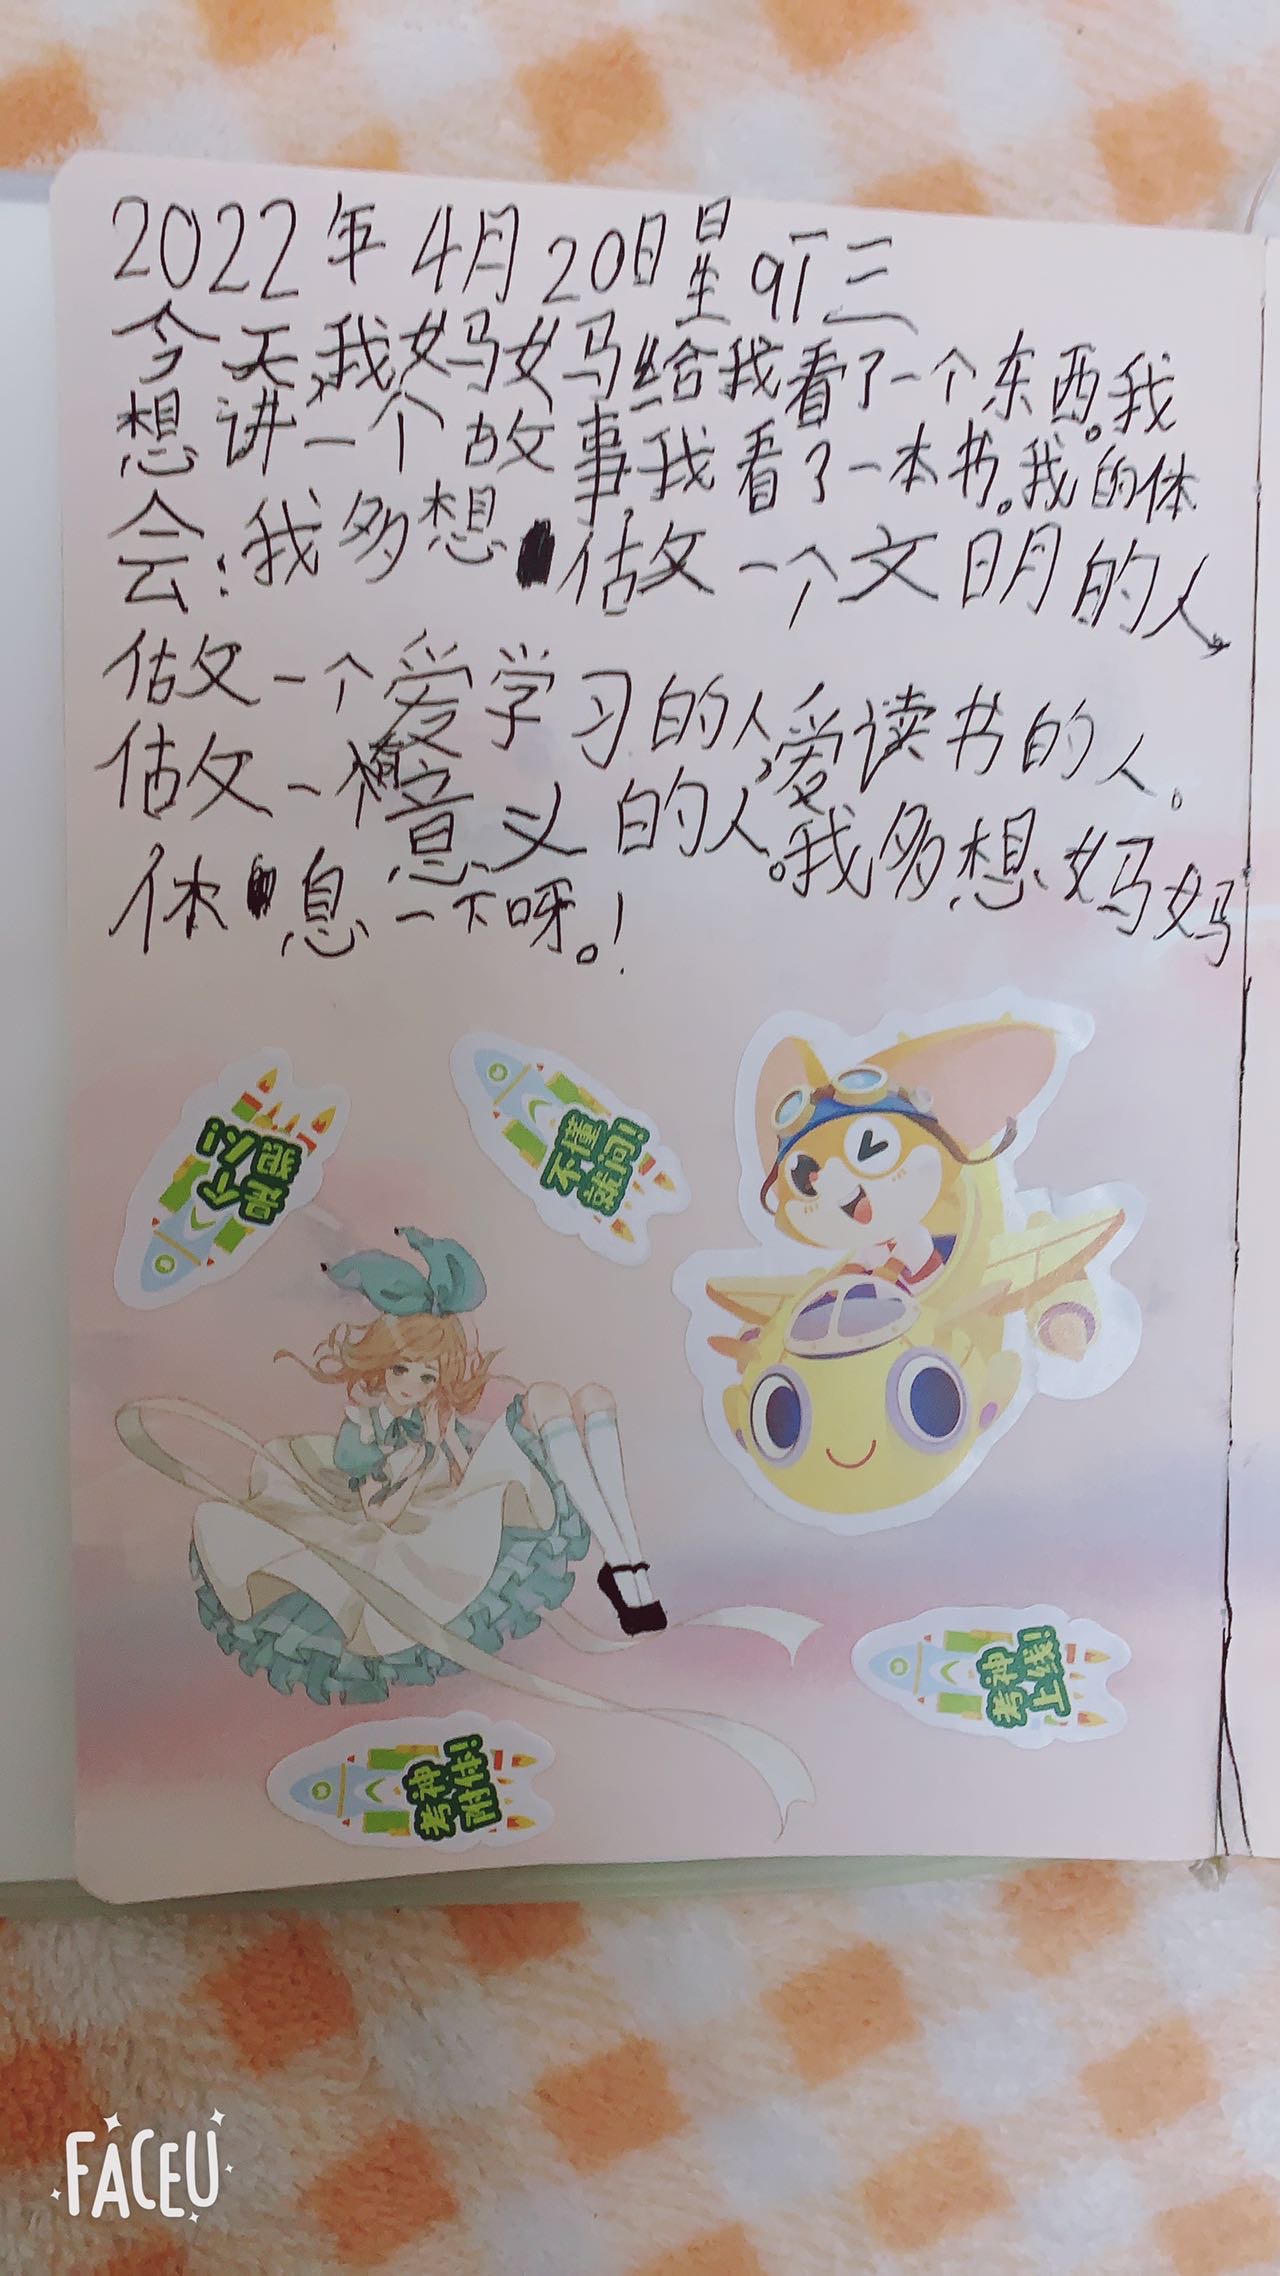 2022年4月20日星期三
今天,我妈妈给我看了一个东西。我
想讲一个故事,我看了一本书。我的体
会:我多想做一个文明的人,
做一个爱学习的人,爱读书的人。
做一个有意义的人。我多想妈妈
休息一下呀。!
不懂
就问!
考神
上线!
考神
附体!
FACEU